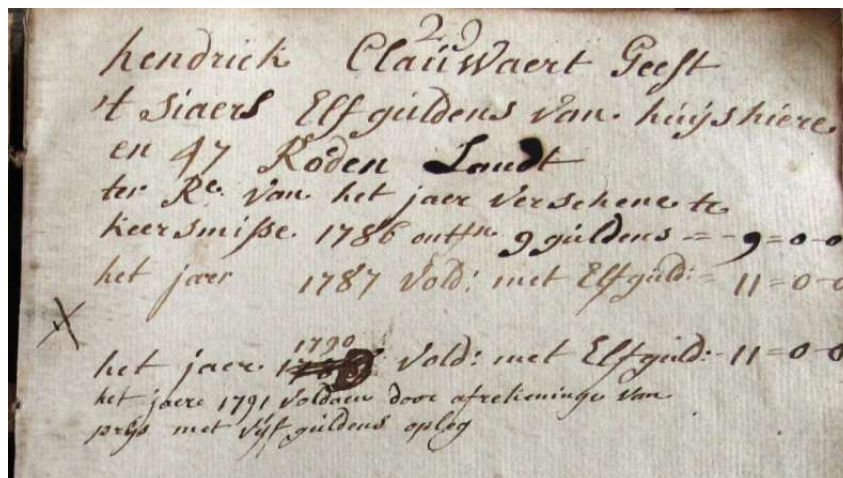 29
hendrick Clauwaert Geeft
't siaers Elf guldens van huijshiere
en 47 Roden Landt
ter Re. van het jaer verschene te
keersmisse 1786 ontfn. 9 guldens = - 9 = 0 - 0
het jaer 1787 vold: met Elf guld: - 11 = 0 - 0
1790
het jaere vold: met Elf guld: - 11 = 0 - 0
het jaere 1791 voldaen door afrekeninge van
prijs met vijf guldens opleg